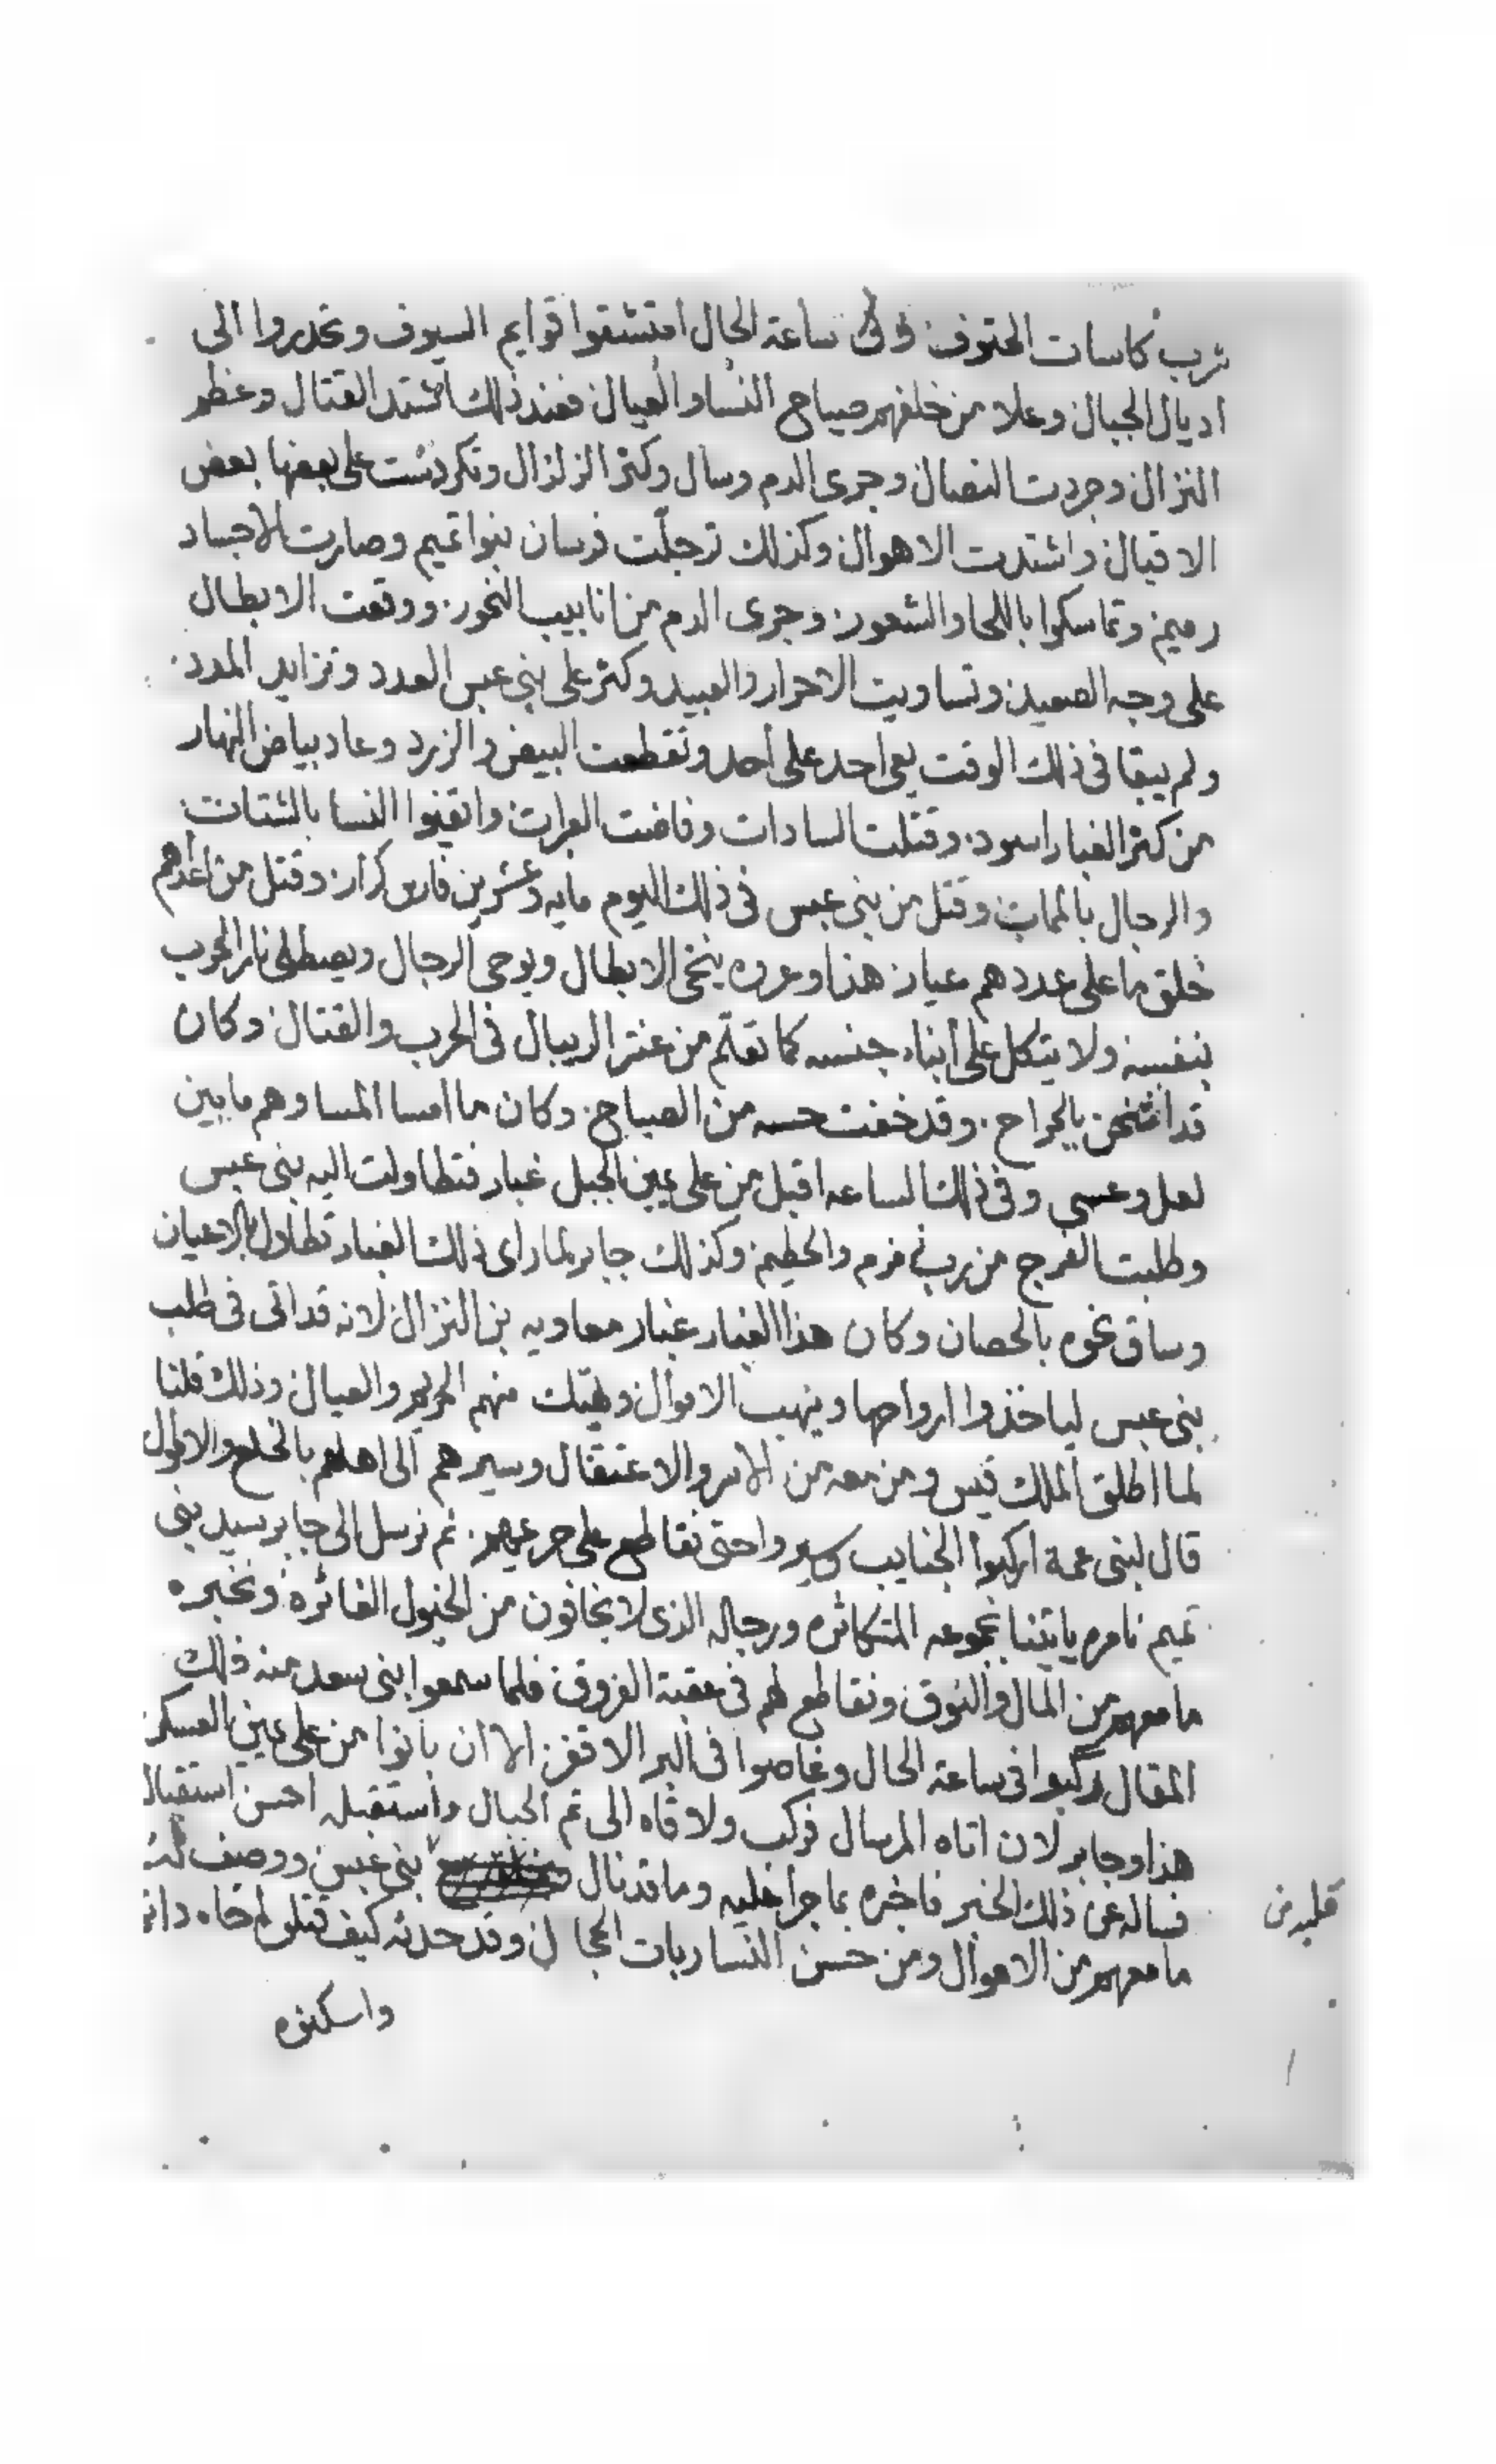 شرب كاسات الحتوف وفى ساعة الحال امتشقوا قوايم السيوف وتحدروا الى
اديال الجبال وعلا من خلفهم صياح النسا والعيال فعند ذلك اشتد القتال وعظم
النزال وجردت النصال وجرى الدم وسال وكثر الزلزال وتكردست على بعضها بعض
الاقيال واشتدت الاهوال وكذلك ترجلت فرسان بنوا تميم وصارت الاجساد
رميم وتماسكوا باللحا والشعور وجرى الدم من انابيب النحور ووقعت الابطال
على وجه الصعيد وتساويت الاحرار والعبيد وكثر على بني عبس العدد وتزايد المدد
ولم يبقا فى ذلك الوقت يعي احد على أحد وتقطعت البيض والزرد وعاد بياض النهار
من كثر الغبار اسود وقتلت السادات وفاضت العبرات وايقنوا النسا بالشتات
والرجال بالممات وقتل من بنى عبس فى ذلك اليوم مايه وعشرين فارس كرار وقتل من اعداهم
خلق ما على عددهم عيار هذا وعروه ينخى الابطال ويوحى الرجال ويصطلى نار الحرب
بنفسه ولا يتكل على أبناء جنسه كما تعلم من عنتر الريبال فى الحرب والقتال وكان
قد اثخن بالجراح وقد خفت حسه من الصياح وكان ما امسا المسا وهم مابين
لعل وعسى وفى ذلك الساعه اقبل من على يمين الجبل غبار فتطاولت اليه بنى عبس
وطلبت الفرج من رب زمزم والحطيم وكذلك جابر لما راى ذلك الغبار تطاول بالاعيان
وساق نحوه بالحصان وكان هذا الغبار غبار معاويه بن النزال لانه قد اتى فى طلب
بنى عبس لياخذوا ارواحها وينهب الاموال ويهتك منهم الحريم والعيال وذلك قلنا
لما اطلق الملك قيس ومن معه من الاسر والاعتقال وسيرهم الى اهلهم بالخلع والاموال
قال لبنى عمه اركبوا الجنايب وسيروا حتى نقاطع على حريمهم ثم نرسل الى جابر سيد بنى
تميم نامره ياتينا بجموعه المتكاثره ورجاله الذى لا يخافون من الخيول الغائره ونخبره
ما معهم من المال والنوق ونقاطع لهم فى عقبة الفروق فلما سمعوا بنى سعد منه ذلك
المقال ركبوا فى ساعة الحال وغاصوا فى البر الاقفر الا ان بانوا من على يمين العسكر
هذا وجابر لان اتاه المرسال فركب ولاقاه الى تم الجبال واستقبله احسن استقبال
فساله عن ذلك الخبر فاخبره بما جرا عليه وما قد نال بنى عبس ووصف له
ما معهم من الاموال ومن حسن النسا ربات الحجال وقد حدثه كيف قتلو اخاه
واسكنوه